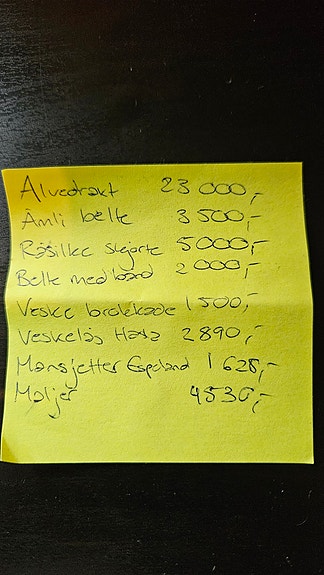 Alvedrakt 23 000,-
Åmli belte 3 500,-
Råsilke skjorte 5000,-
Belte med bånd 2 000,-
Veske brokkade 1500,-
Veskelås Hasla 2890,-
Mansjetter Espeland 1 628,-
Maljer 4530,-